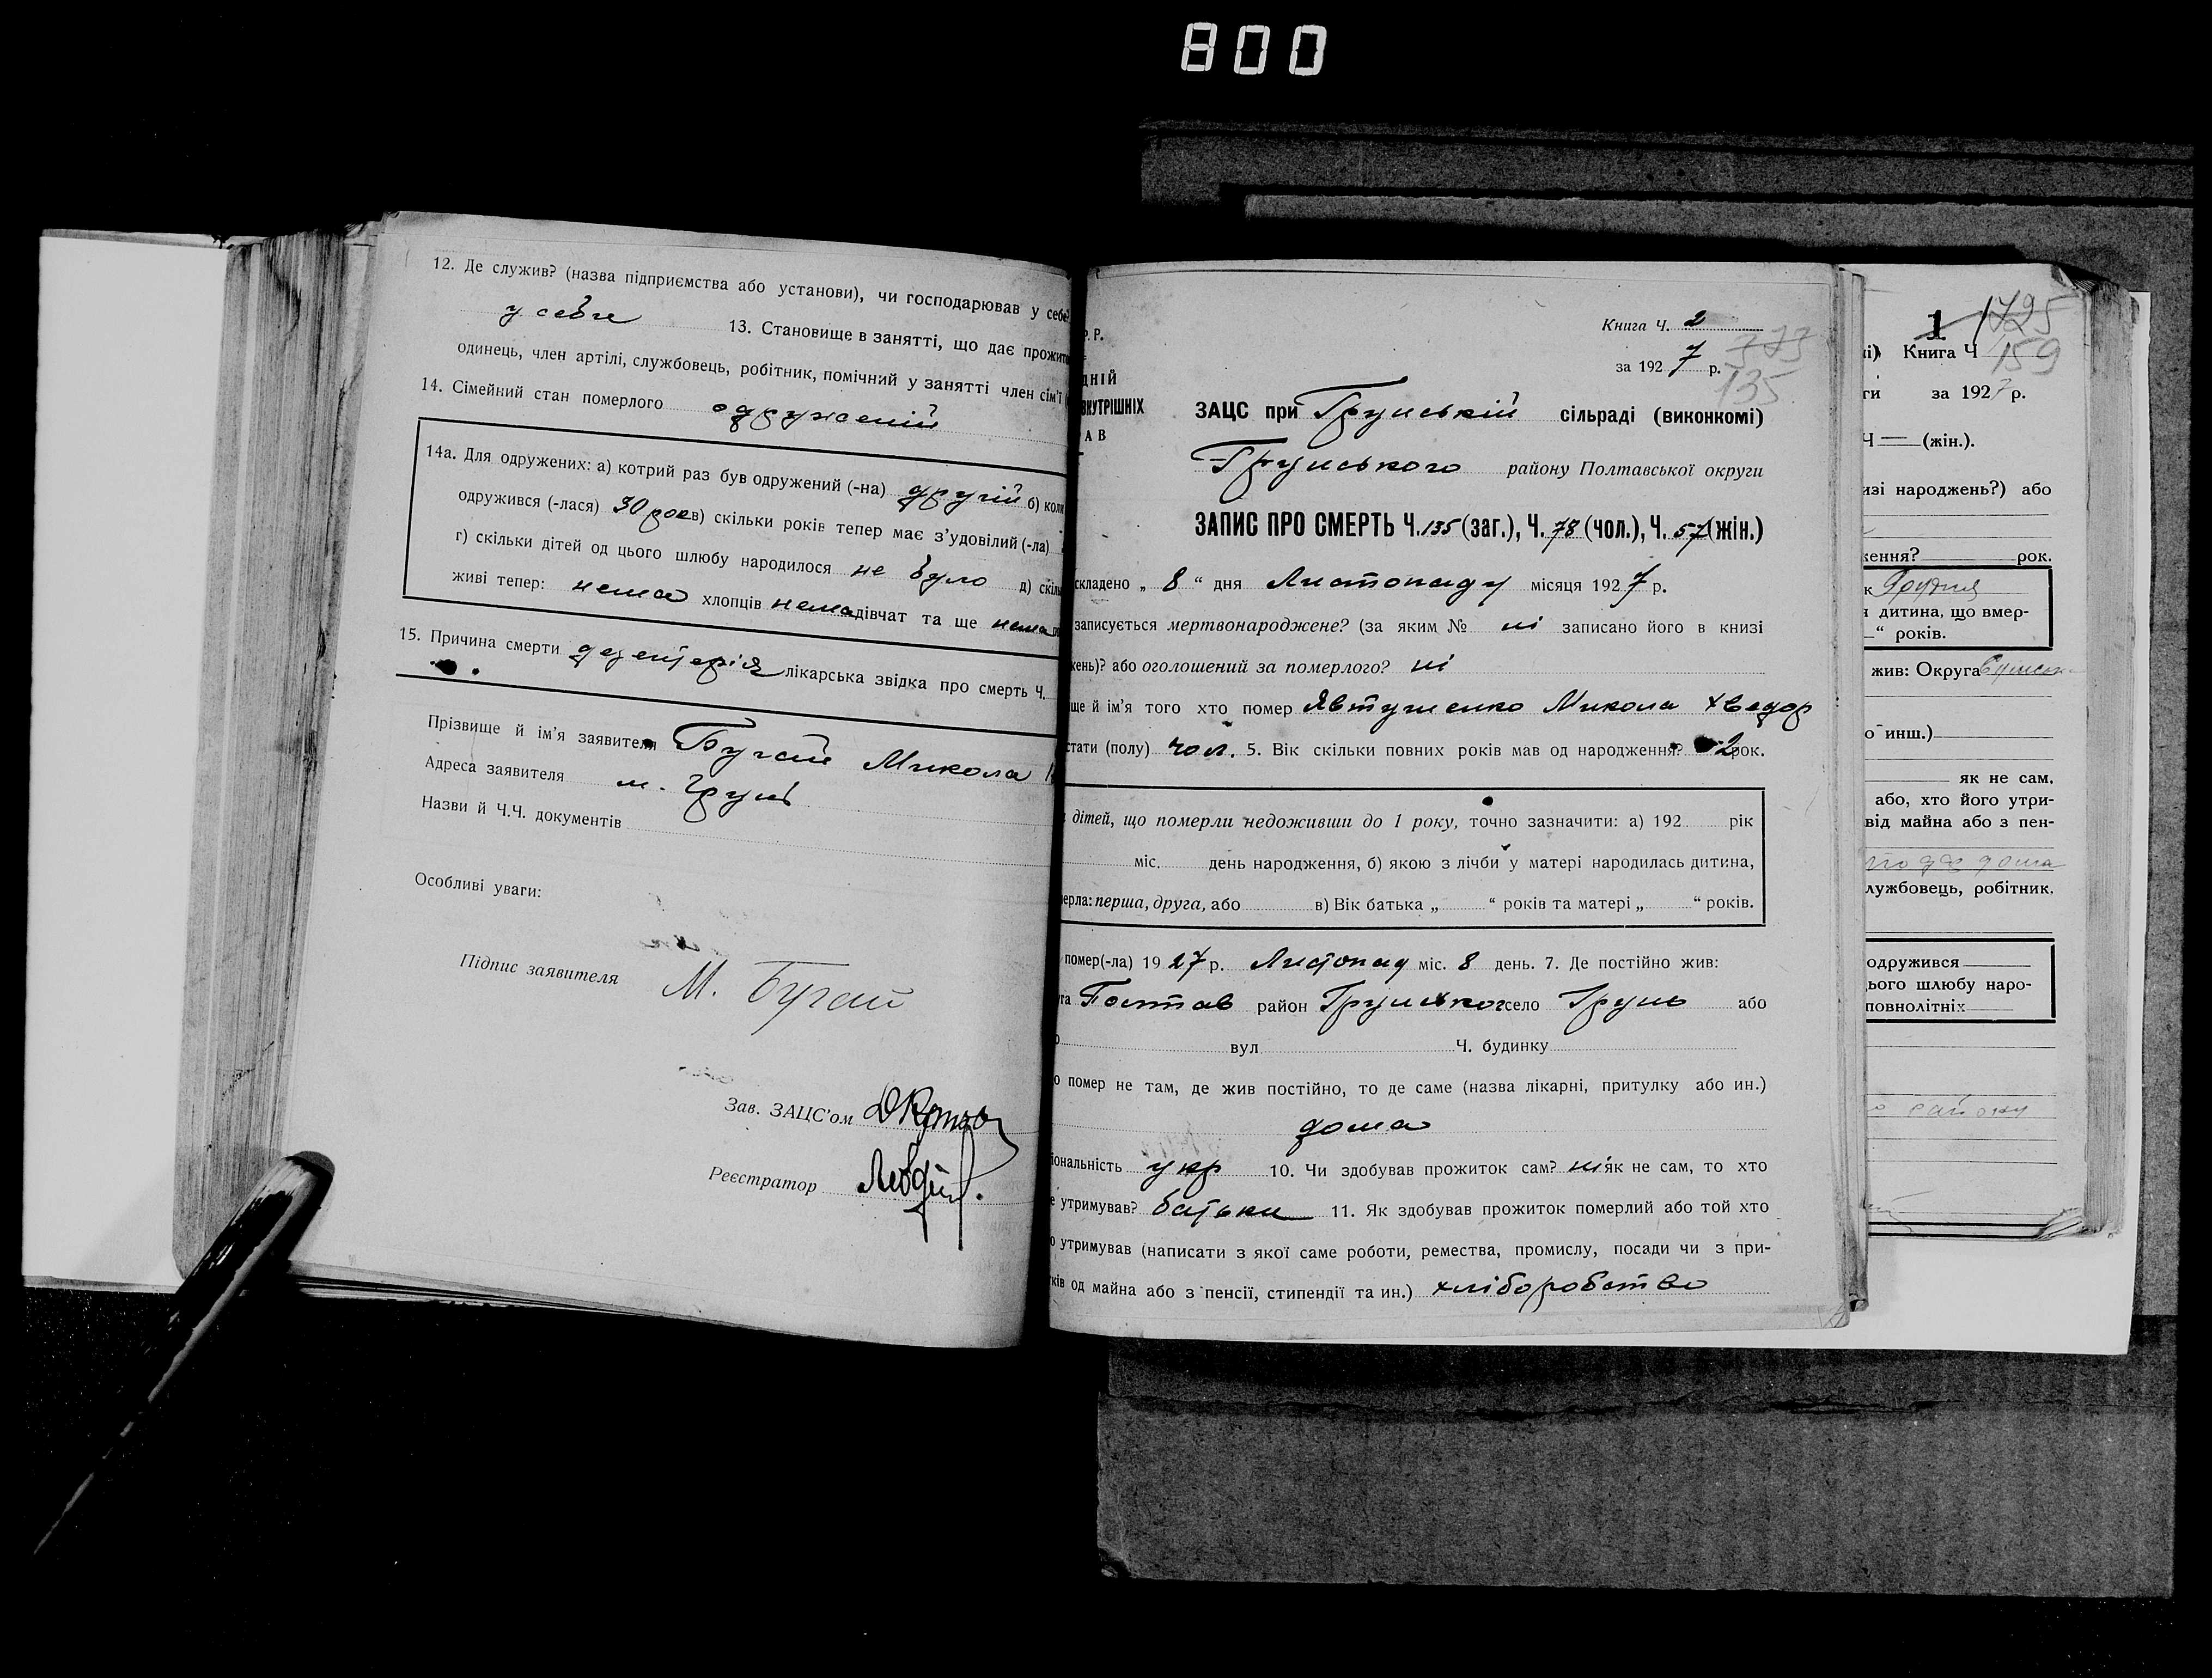 800
12. Де служив? (назва підприємства або установи), чи господарював у себе?
у себе 13. Становище в занятті, що дає прожито
одинець, член артілі, службовець, робітник, помічний у занятті член сім'ї (
14. Сімейний стан померлого одружений
14а. Для одружених: а) котрий раз був одружений (-на) другій б) коли
одружився (-лася) 30 рок в) скільки років тепер має з'удовілий (-ла)
г) скільки дітей од цього шлюбу народилося не було д) скіль
живі тепер: нема хлопців нема дівчат та ще нема
15. Причина смерти дезентерія лікарська звідка про смерть Ч.
Прізвище й ім'я заявителя Бугай Микола
Адреса заявителя м. Грунь
Назви й Ч.Ч. документів
Особливі уваги:
Підпис заявителя М. Бугай
Зав. ЗАЦС'ом
Реєстратор
Р.
ДНІЙ
ВНУТРІШНІХ
АВ
Книга Ч. 2
за 1927 р.
135
ЗАЦС при Грунській сільраді (виконкомі)
Грунського району Полтавської округи
ЗАПИС ПРО СМЕРТЬ Ч. 135 (заг.), Ч. 78 (чол.), Ч. 57 (жін.)
складено „ 8 " дня Листопаду місяця 1927 р.
записується мертвонароджене? (за яким № ні записано його в книзі
жень)? або оголошений за померлого? ні
ще й ім'я того хто помер Явтушенко Микола Хведор
стати (полу) чол. 5. Вік скільки повних років мав од народження? 2 рок.
дітей, що померли недоживши до 1 року, точно зазначити: а) 192 рік
міс. день народження, б) якою з лічби у матері народилась дитина,
ерла: перша, друга, або в) Вік батька „ " років та матері „ " років.
помер(-ла) 1927 р. Листопад міс. 8 день. 7. Де постійно жив:
га Полтав район Грунського село Грунь або
вул Ч. будинку
о помер не там, де жив постійно, то де саме (назва лікарні, притулку або ин.)
дома
іональність укр 10. Чи здобував прожиток сам? ні як не сам, то хто
е утримував? батьки 11. Як здобував прожиток померлий або той хто
о утримував (написати з якої саме роботи, ремества, промислу, посади чи з при-
ків од майна або з пенсії, стипендії та ин.) хліборобство
1 1725
і) Книга Ч 159
ти за 1927 р.
Ч — (жін.).
изі народжень?) або
ження? рок.
к Грудня
я дитина, що вмер-
" років.
жив: Округа
о инш.)
як не сам,
або, хто його утри-
від майна або з пен-
дома
лужбовець, робітник.
одружився
ього шлюбу наро-
повнолітніх
району